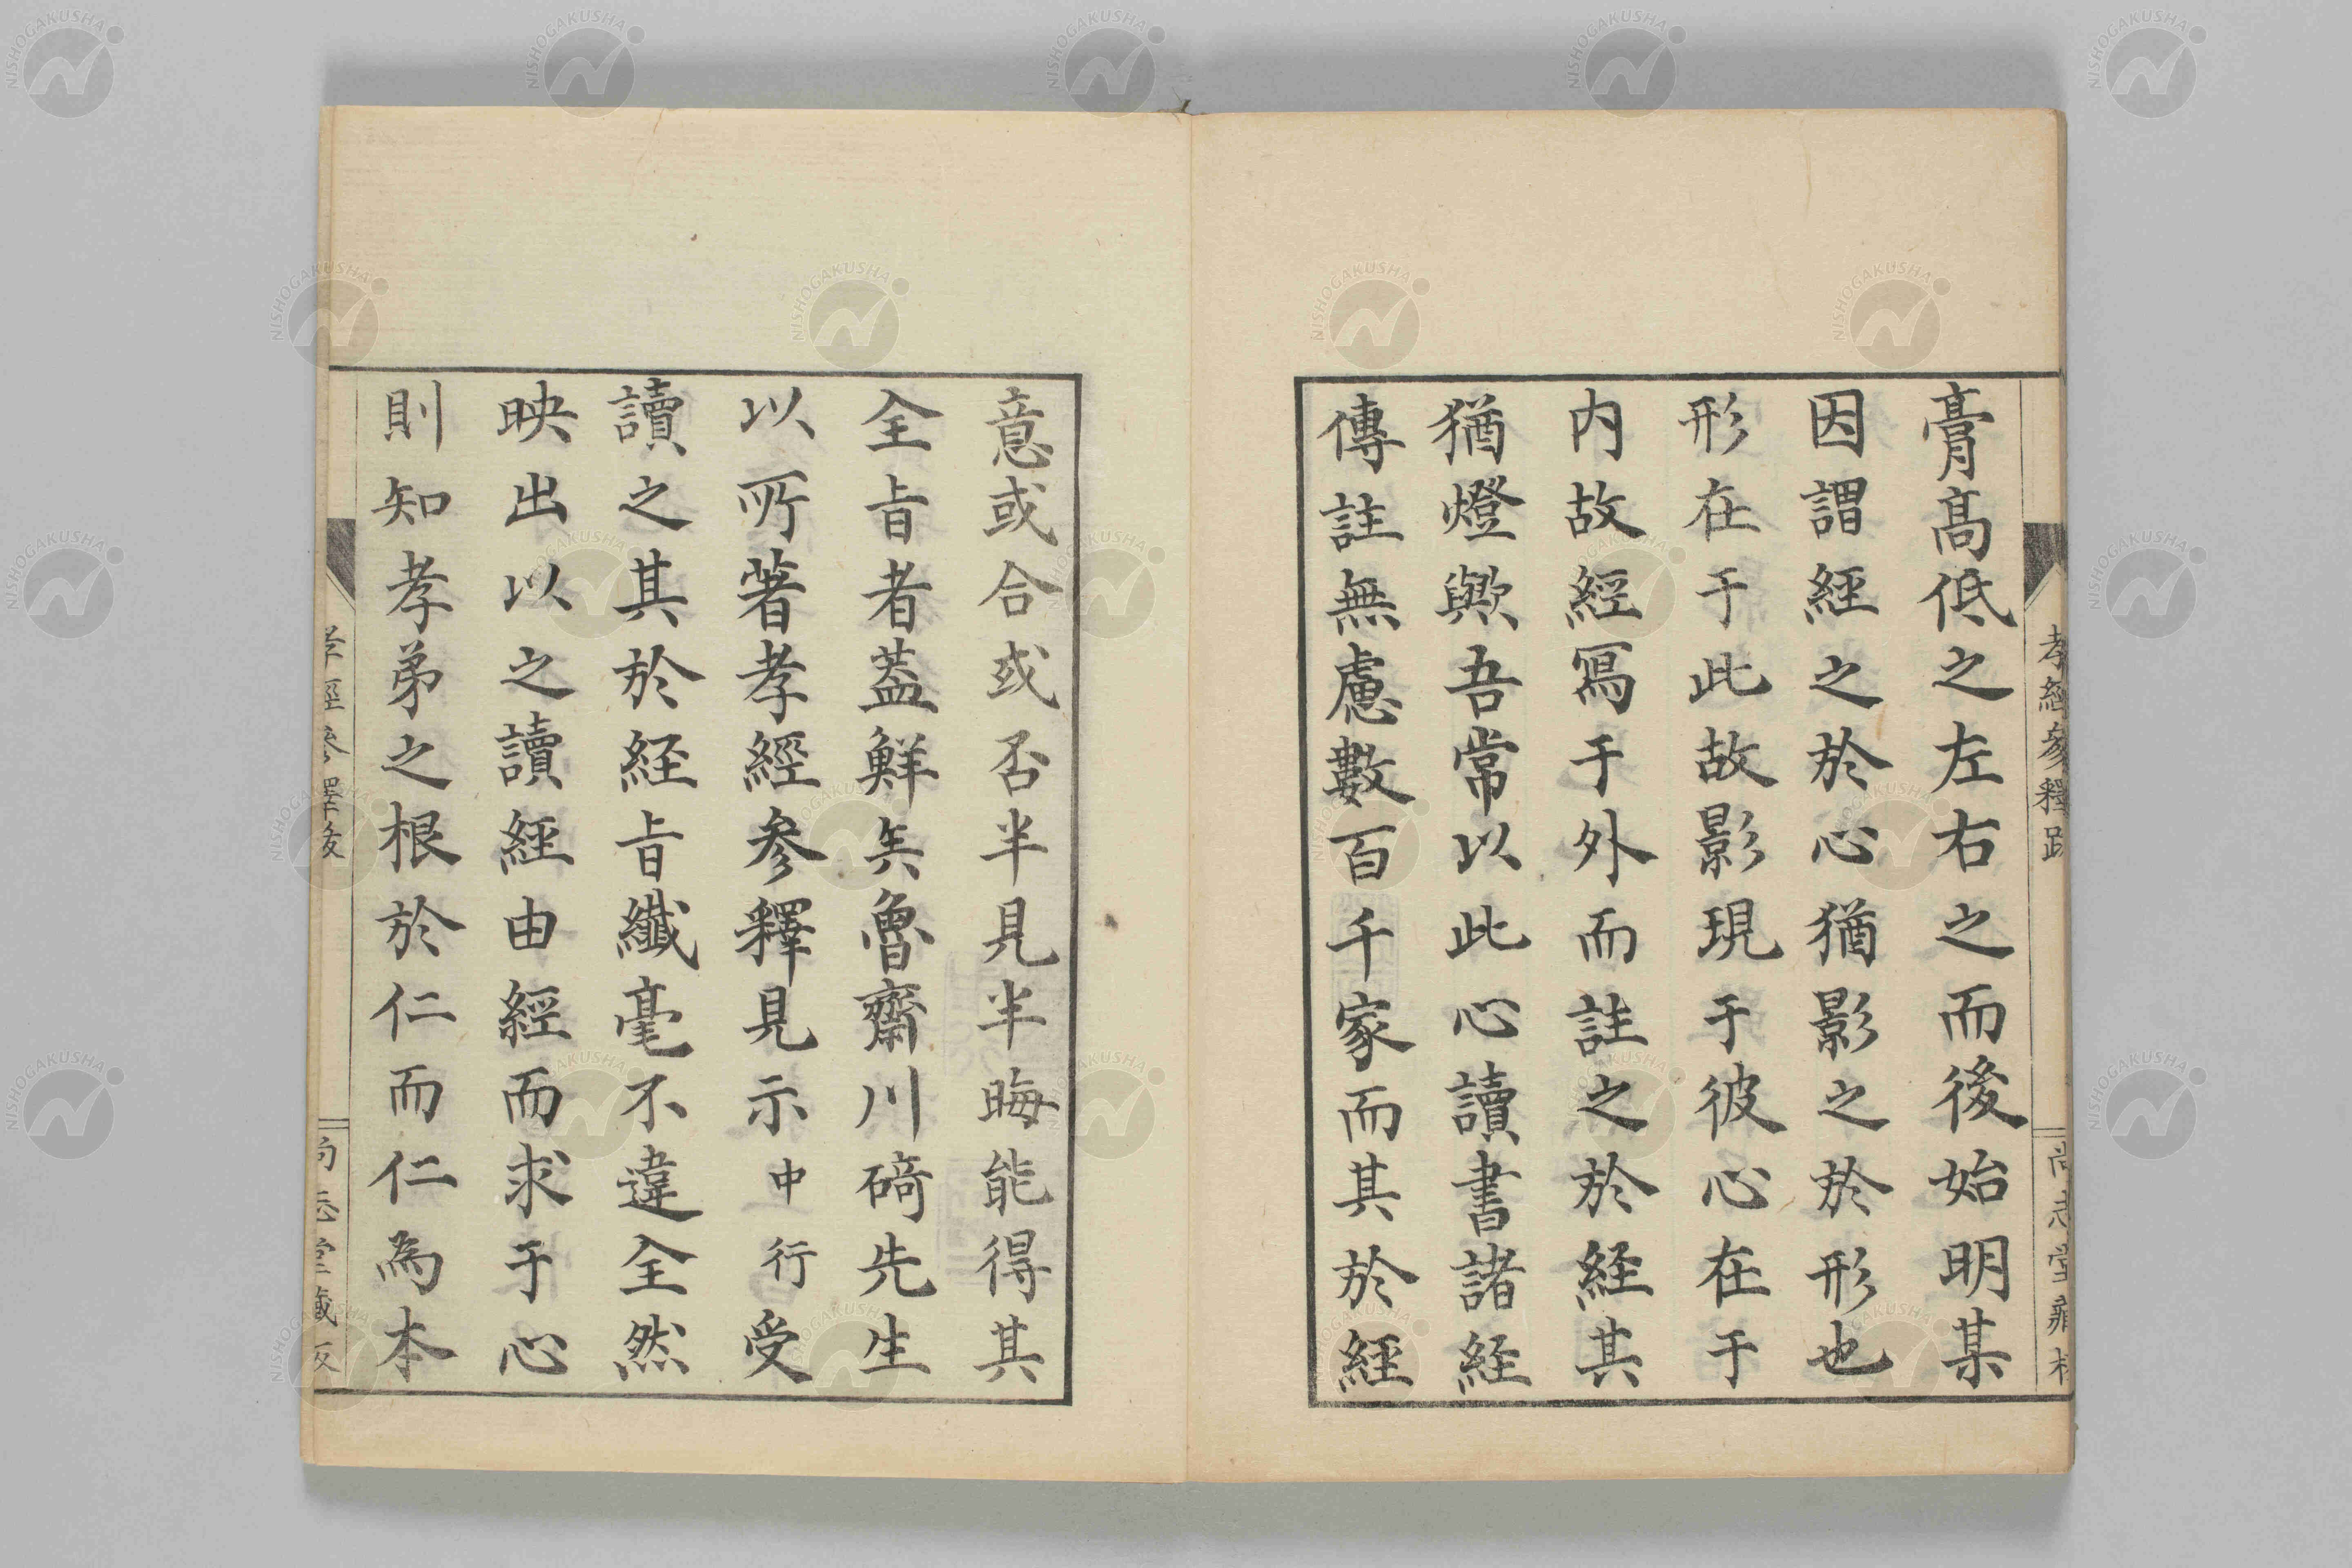 膏高低之左右之而後始明某
因謂經之於心猶影之於形也
形在于此故影現于彼心在于
内故經寫于外而註之於経其
猶燈歟吾常以此心讀書諸経
傳註無慮數百千家而其於經
意或合或否半見半晦能得其
全旨者蓋鮮矣魯齋川﨑先生
以所著孝經參釋見示中行受
讀之其於経旨纖毫不違全然
映出以之讀經由經而求于心
則知孝弟之根於仁而仁為本
孝經參釋跋
尚志堂藏
孝經參釋
尚志堂藏
NISHOGAKUSHA